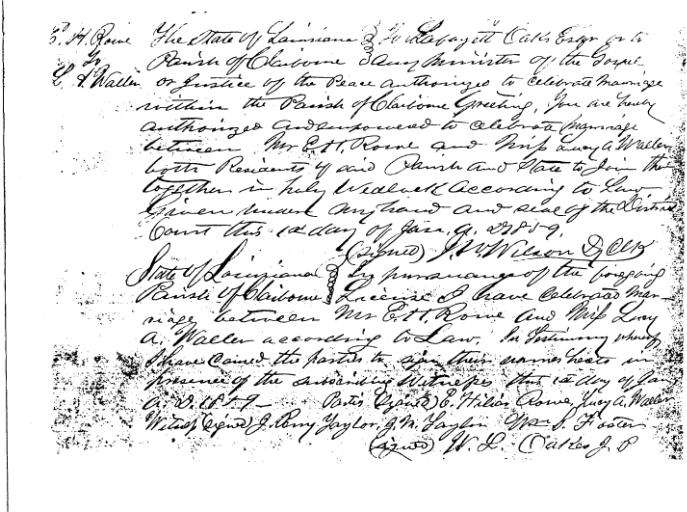 E. H. Rowe The State of Louisiana } To Lafayett Oakes Esqr or to
to Parish of Claiborne } any Minister of the Gospel
L. A. Waller or Justice of the Peace authorized to celebrate marriage
within the Parish of Claiborne Greeting, You are hereby
authorized and empowered to celebrate marriage
between Mr E. H. Rowe and Miss Lucy A Waller
both Residents of said Parish and State to Join them
together in holy Wedlock According to Law
Given under my hand and seal of the District
Court this 1st day of Jan. A. D. 1859.
(signed) J. W. Wilson Dy Clk
State of Louisiana } In pursuance of the foregoing
Parish of Claiborne } License I have celebrated mar-
riage between Mr E. H. Rowe and Miss Lucy
A. Waller according to Law. In Testimony whereof
I have caused the parties to sign their names hereto in
presence of the subscribing Witnesses this 1st day of Jan
A. D. 1859 Parties (signed) E. Hilias Rowe, Lucy A. Waller
Witness (signed) J. Perry Taylor, J. M. Taylor Wm P. Foster
(signed) W. L. Oakes J. P